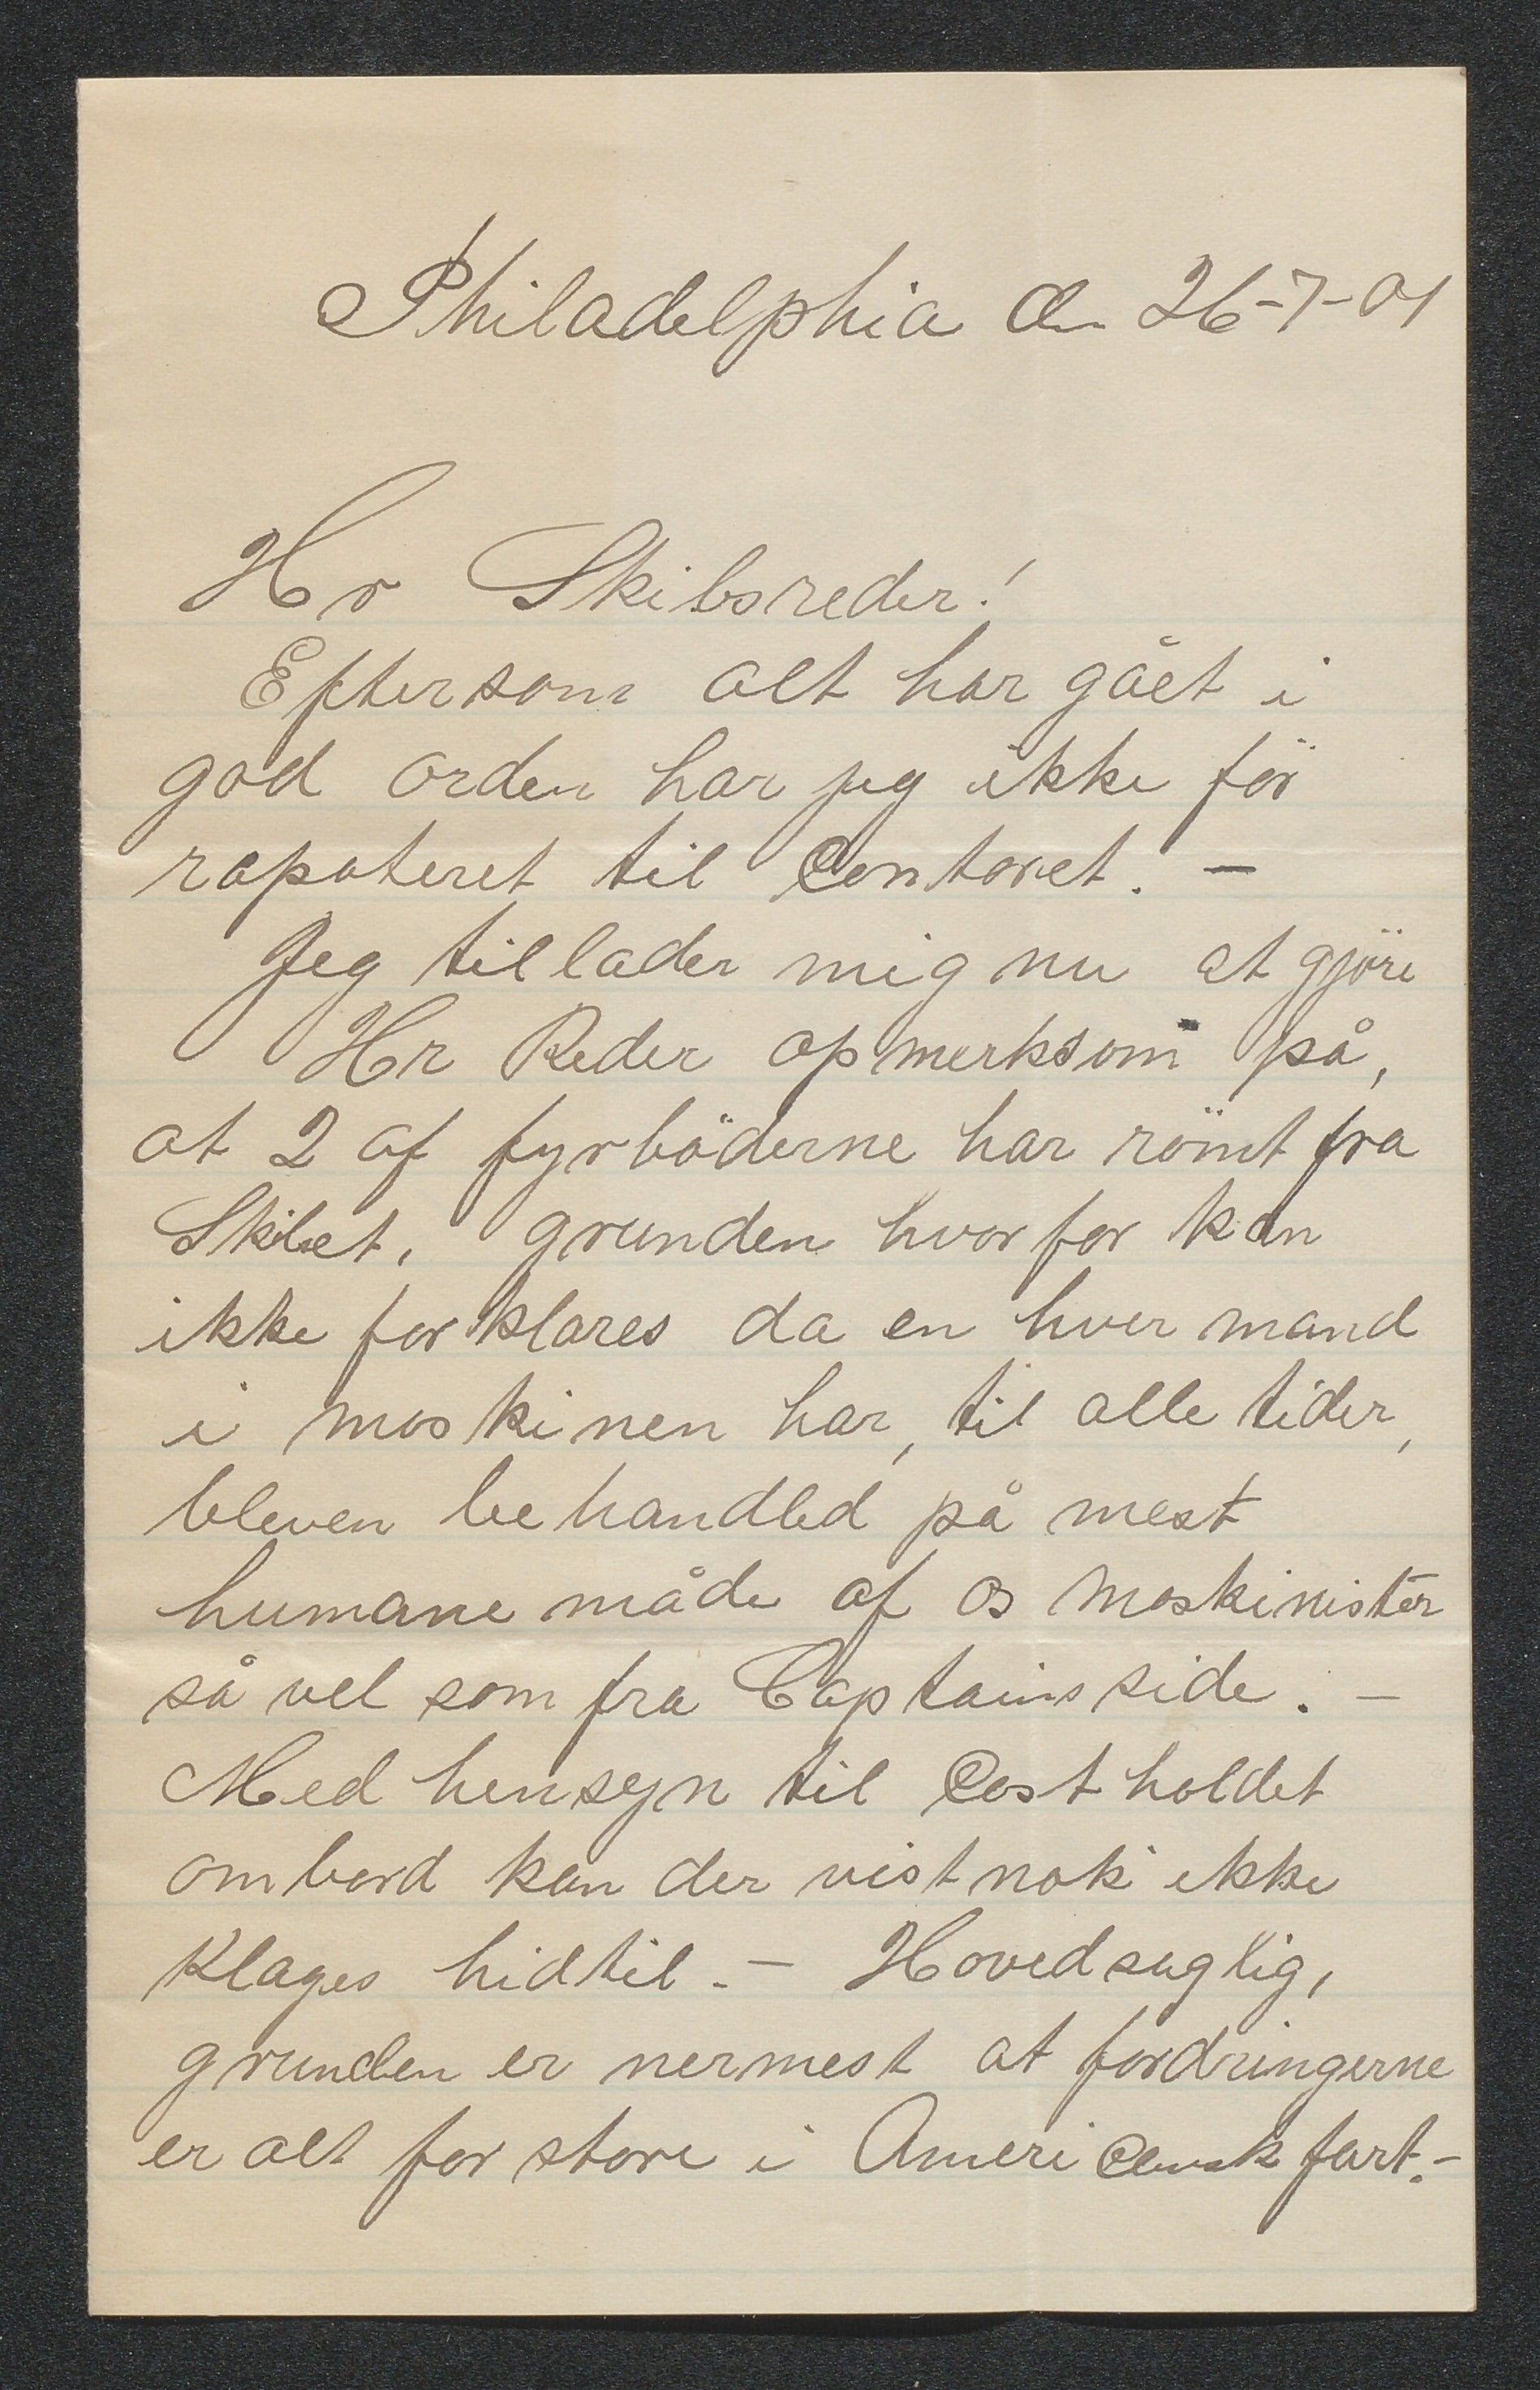 Philadelphia den 26-7-01
Hr Skibsreder!
Eftersom alt har gået i
god orden har jeg ikke för
rapoteret til Contoret. -
Jeg tillader mig nu at gjöre
Hr Reder opmerksom på,
at 2 af fyrböderne har römt fra
Skibet, grunden hvorfor kan
ikke forklares da en hver mand
i maskinen har, til alle tider,
bleven behandled på mest
humane måde af os maskinister
så vel som fra Captains side. -
Med hensyn til Costholdet
ombord kan der vistnok ikke
Klages hidtil. - Hovedsaglig,
grunden er nermest at fordringerne
er alt for store i Americansk fart. -